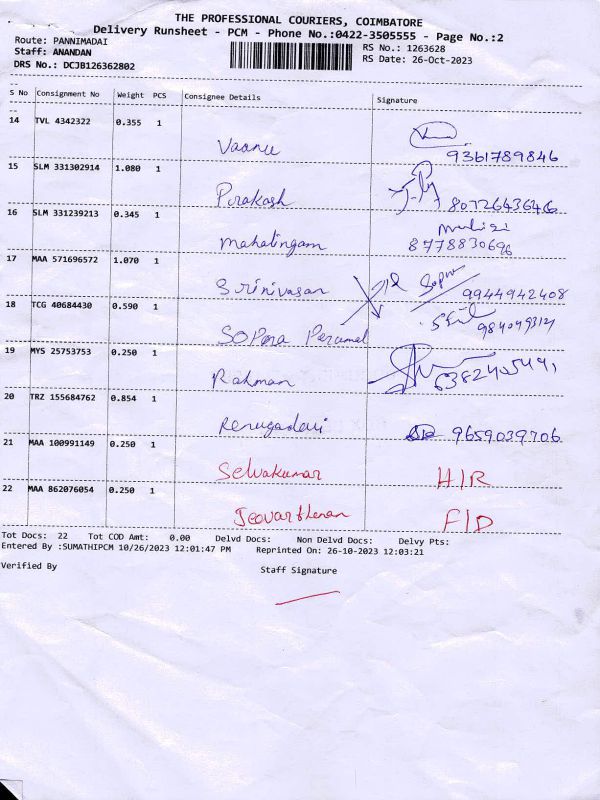 THE PROFESSIONAL COURIERS, COIMBATORE
Delivery Runsheet - PCM - Phone No.:0422-3505555 - Page No.:2
Route: PANNIMADAI
RS No.: 1263628
Staff: ANANDAN
RS Date: 26-Oct-2023
DRS No.: DCJB126362802
S No Consignment No Weight PCS Consignee Details Signature
14 TVL 4342322 0.355 1
Vaanu 9361789846
15 SLM 331302914 1.080 1
Prakash 8072643646
16 SLM 331239213 0.345 1
Mahalingam 8778830696
17 MAA 571696572 1.070 1
Srinivasan 9944942408
18 TCG 40684430 0.590 1
Perumal
19 MYS 25753753 0.250 1
Rahman
20 TRZ 155684762 0.854 1
Renugadevi 9659039706
21 MAA 100991149 0.250 1
Selvakumar H/R
22 MAA 862076054 0.250 1
F/D
Tot Docs: 22 Tot COD Amt: 0.00 Delvd Docs: Non Delvd Docs: Delvy Pts:
Entered By :SUMATHIPCM 10/26/2023 12:01:47 PM Reprinted On: 26-10-2023 12:03:21
Verified By Staff Signature